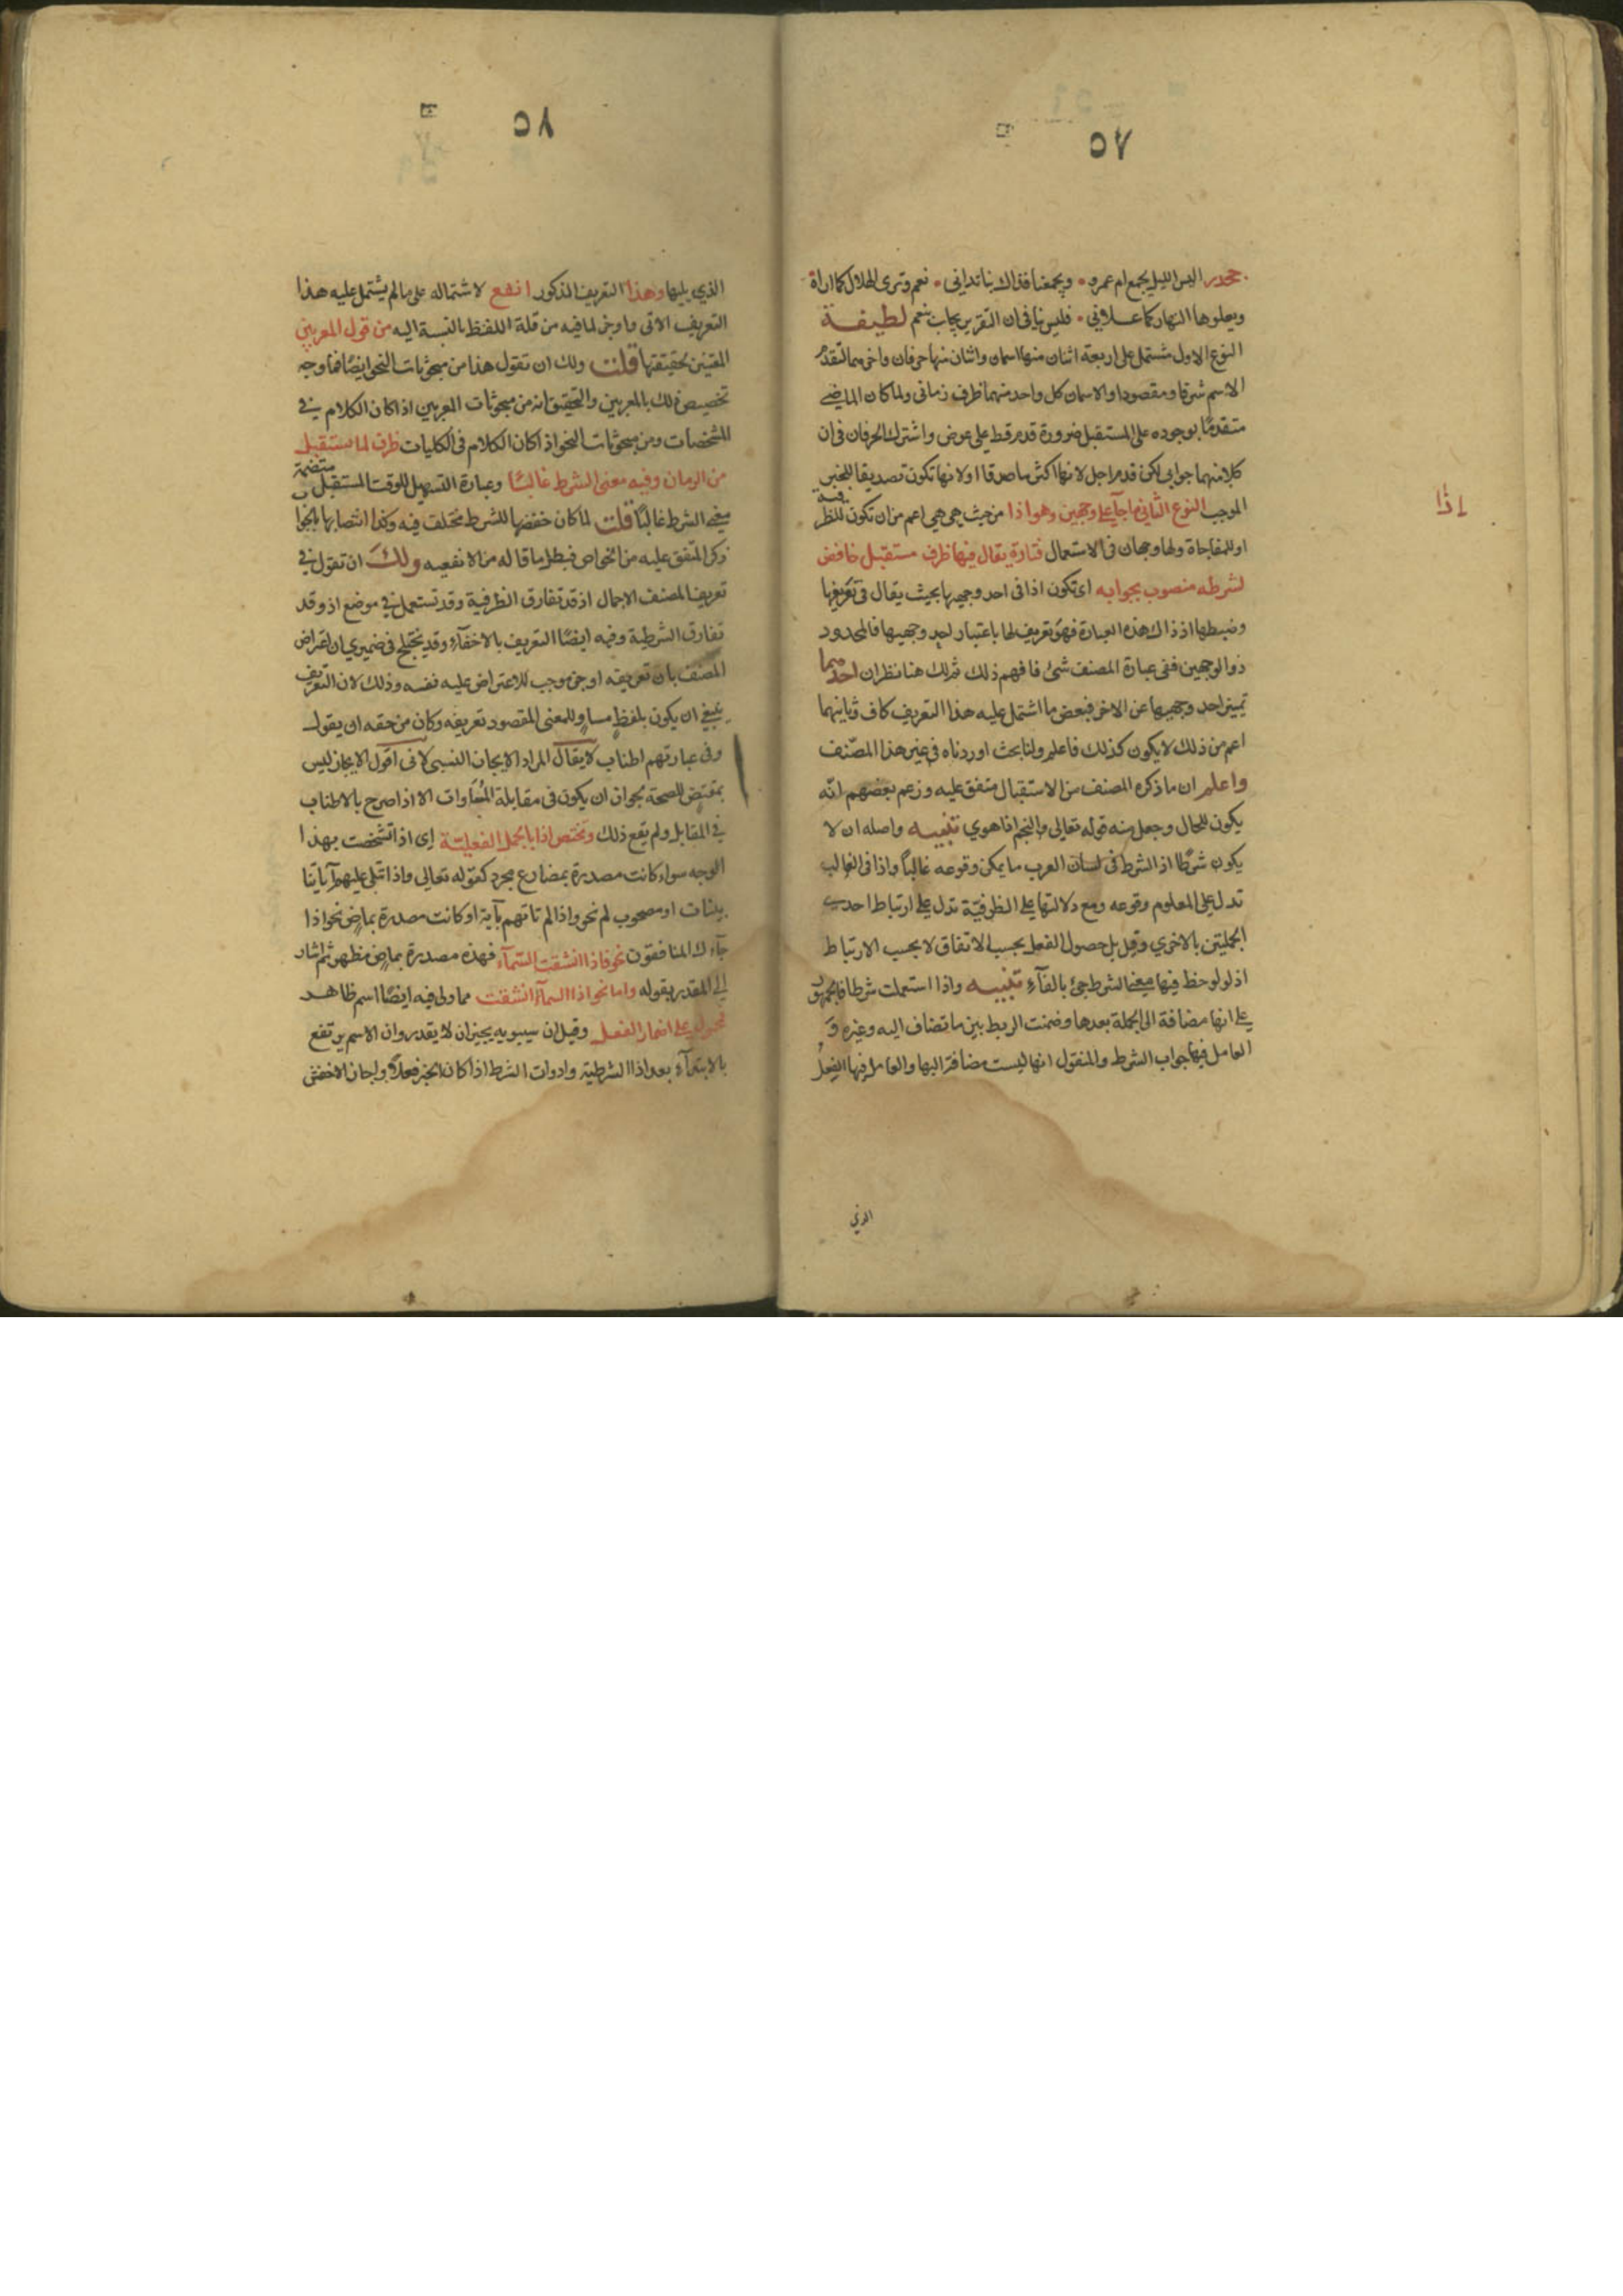 ٥٧
جحدر اليس الليل يجمع ام عمرو • ويجمعنا فذاك بنا تداني • نعم وترى الهلال كما اراه
ويعلوها النهار كما علاني • فليس نافي ان التقرير يجاب بنعم لطيفة
النوع الاول مشتمل على اربعة اثنان منها اسمان واثنان منها حرفان واخرهما لتقدم
الاسم شرفا ومقصودا والاسمان كل واحد منهما ظرف زماني ولما كان الماضي
متقدمًا بوجوده على المستقبل ضرورة قدم قط على عوض واشترك الحرفان في ان
كلا منهما جوابي لكن قدم اجل لانها اكثر ماصدقا او لانها تكون تصديقا للخبر
الموجب النوع الثاني ما جآء على وجهين وهو اذا من حيث هي هي اعم من ان تكون للظرفية
اذا
او للمفاجاة ولها وجهان في الاستعمال فتارة يقال فيها ظرف مستقبل خافض
لشرطه منصوب بجوابه اي تكون اذا في احد وجهيها بحيث يقال في تعريفها
وضبطها اذ ذاك هذه العبارة فهو تعريف لها باعتبار احد وجهيها فالمحدود
ذو الوجهين ففي عبارة المصنف شئ فافهم ذلك ثم لك هنا نظران احدهما
تمييز احد وجهيها عن الاخر فبعض ما اشتمل عليه هذا التعريف كاف وثانيهما
اعم من ذلك لا يكون كذلك فاعلم ولنا بحث اوردناه في غير هذا المصنف
واعلم ان ما ذكره المصنف من الاستقبال متفق عليه وزعم بعضهم انه
يكون للحال وجعل منه قوله تعالى والنجم اذا هوي تنبيه واصله ان لا
يكون شرطا اذ الشرط في لسان العرب ما يمكن وقوعه غالبا واذا في الغالب
تدل على المعلوم وقوعه ومع دلالتها على الظرفية تدل على ارتباط احدى
الجملتين بالاخري وقيل بل حصول الفعل بحسب الاتفاق لا بحسب الارتباط
اذ لو لوحظ فيها معنى الشرط جئ بالفآء تنبيه واذا استعملت شرطا فالجمهور
على انها مضافة الى الجملة بعدها وضمنت الربط بين ما تضاف اليه وغيره و
العامل فيها جواب الشرط والمنقول انها ليست مضافة اليها والعامل فيها الفعل
الذي
٥٨
الذي يليها وهذا التعريف المذكور انفع لاشتماله على ما لم يشتمل عليه هذا
التعريف الاتي واوجز لما فيه من قلة اللفظ بالنسبة اليه من قول المعربين
المبينين حقيقتها قلت ولك ان تقول هذا من مبحوثات النحو ايضا فما وجه
تخصيص ذلك بالمعربين والتحقيق انه من مبحوثات المعربين اذا كان الكلام في
المشخصات ومن مبحوثات النحو اذا كان الكلام في الكليات ظرف لما يستقبل
من الزمان وفيه معنى الشرط غالبًا وعبارة التسهيل للوقت المستقبل متضمنة
معنى الشرط غالبًا قلت لما كان خفضها للشرط مختلف فيه وكذا انتصابها بالجواب
ذكر المتفق عليه من الخواص فبطل ما قاله من الانفعيه ولك ان تقول في
تعريف المصنف الاجمال اذ قد تفارق الظرفية وقد تستعمل في موضع اذ وقد
تفارق الشرطية وفيه ايضًا التعريف بالاخفآء وقد يختلج في ضميري ان اعتراض
المصنف بان تعريفه اوجز موجب للاعتراض عليه نفسه وذلك لان التعريف
ينبغي ان يكون بلفظ مساو للمعنى المقصود تعريفه وكان من حقه ان يقول
وفي عبارتهم اطناب لا يقال المراد الايجاز النسبي لاني اقول الايجاز ليس
بمقتض للصحة لجواز ان يكون في مقابلة المساوات الا اذا صرح بالاطناب
في المقابل ولم يقع ذلك وتختص اذا بالجمل الفعلية اي اذا تشخصت بهذا
الوجه سواء كانت مصدرة بمضارع مجرد كقوله تعالى واذا تتلى عليهم آياتنا
بينات او مصحوب لم نحو واذا لم تاتهم بآية او كانت مصدرة بماض نحو اذا
جآءك المنافقون نحو فاذا انشقت السمآء فهذه مصدرة بماض مظهر ثم اشار
الى المقدر بقوله واما نحو اذا السمآء انشقت مما ولى فيه ايضًا اسم ظاهر
فمحمول على اضمار الفعل وقيل ان سيبويه يجيز ان لا يقدر وان الاسم يرتفع
بالابتدآء بعد اذا الشرطية وادوات الشرط اذا كان الخبر فعلا واجاز الاخفش